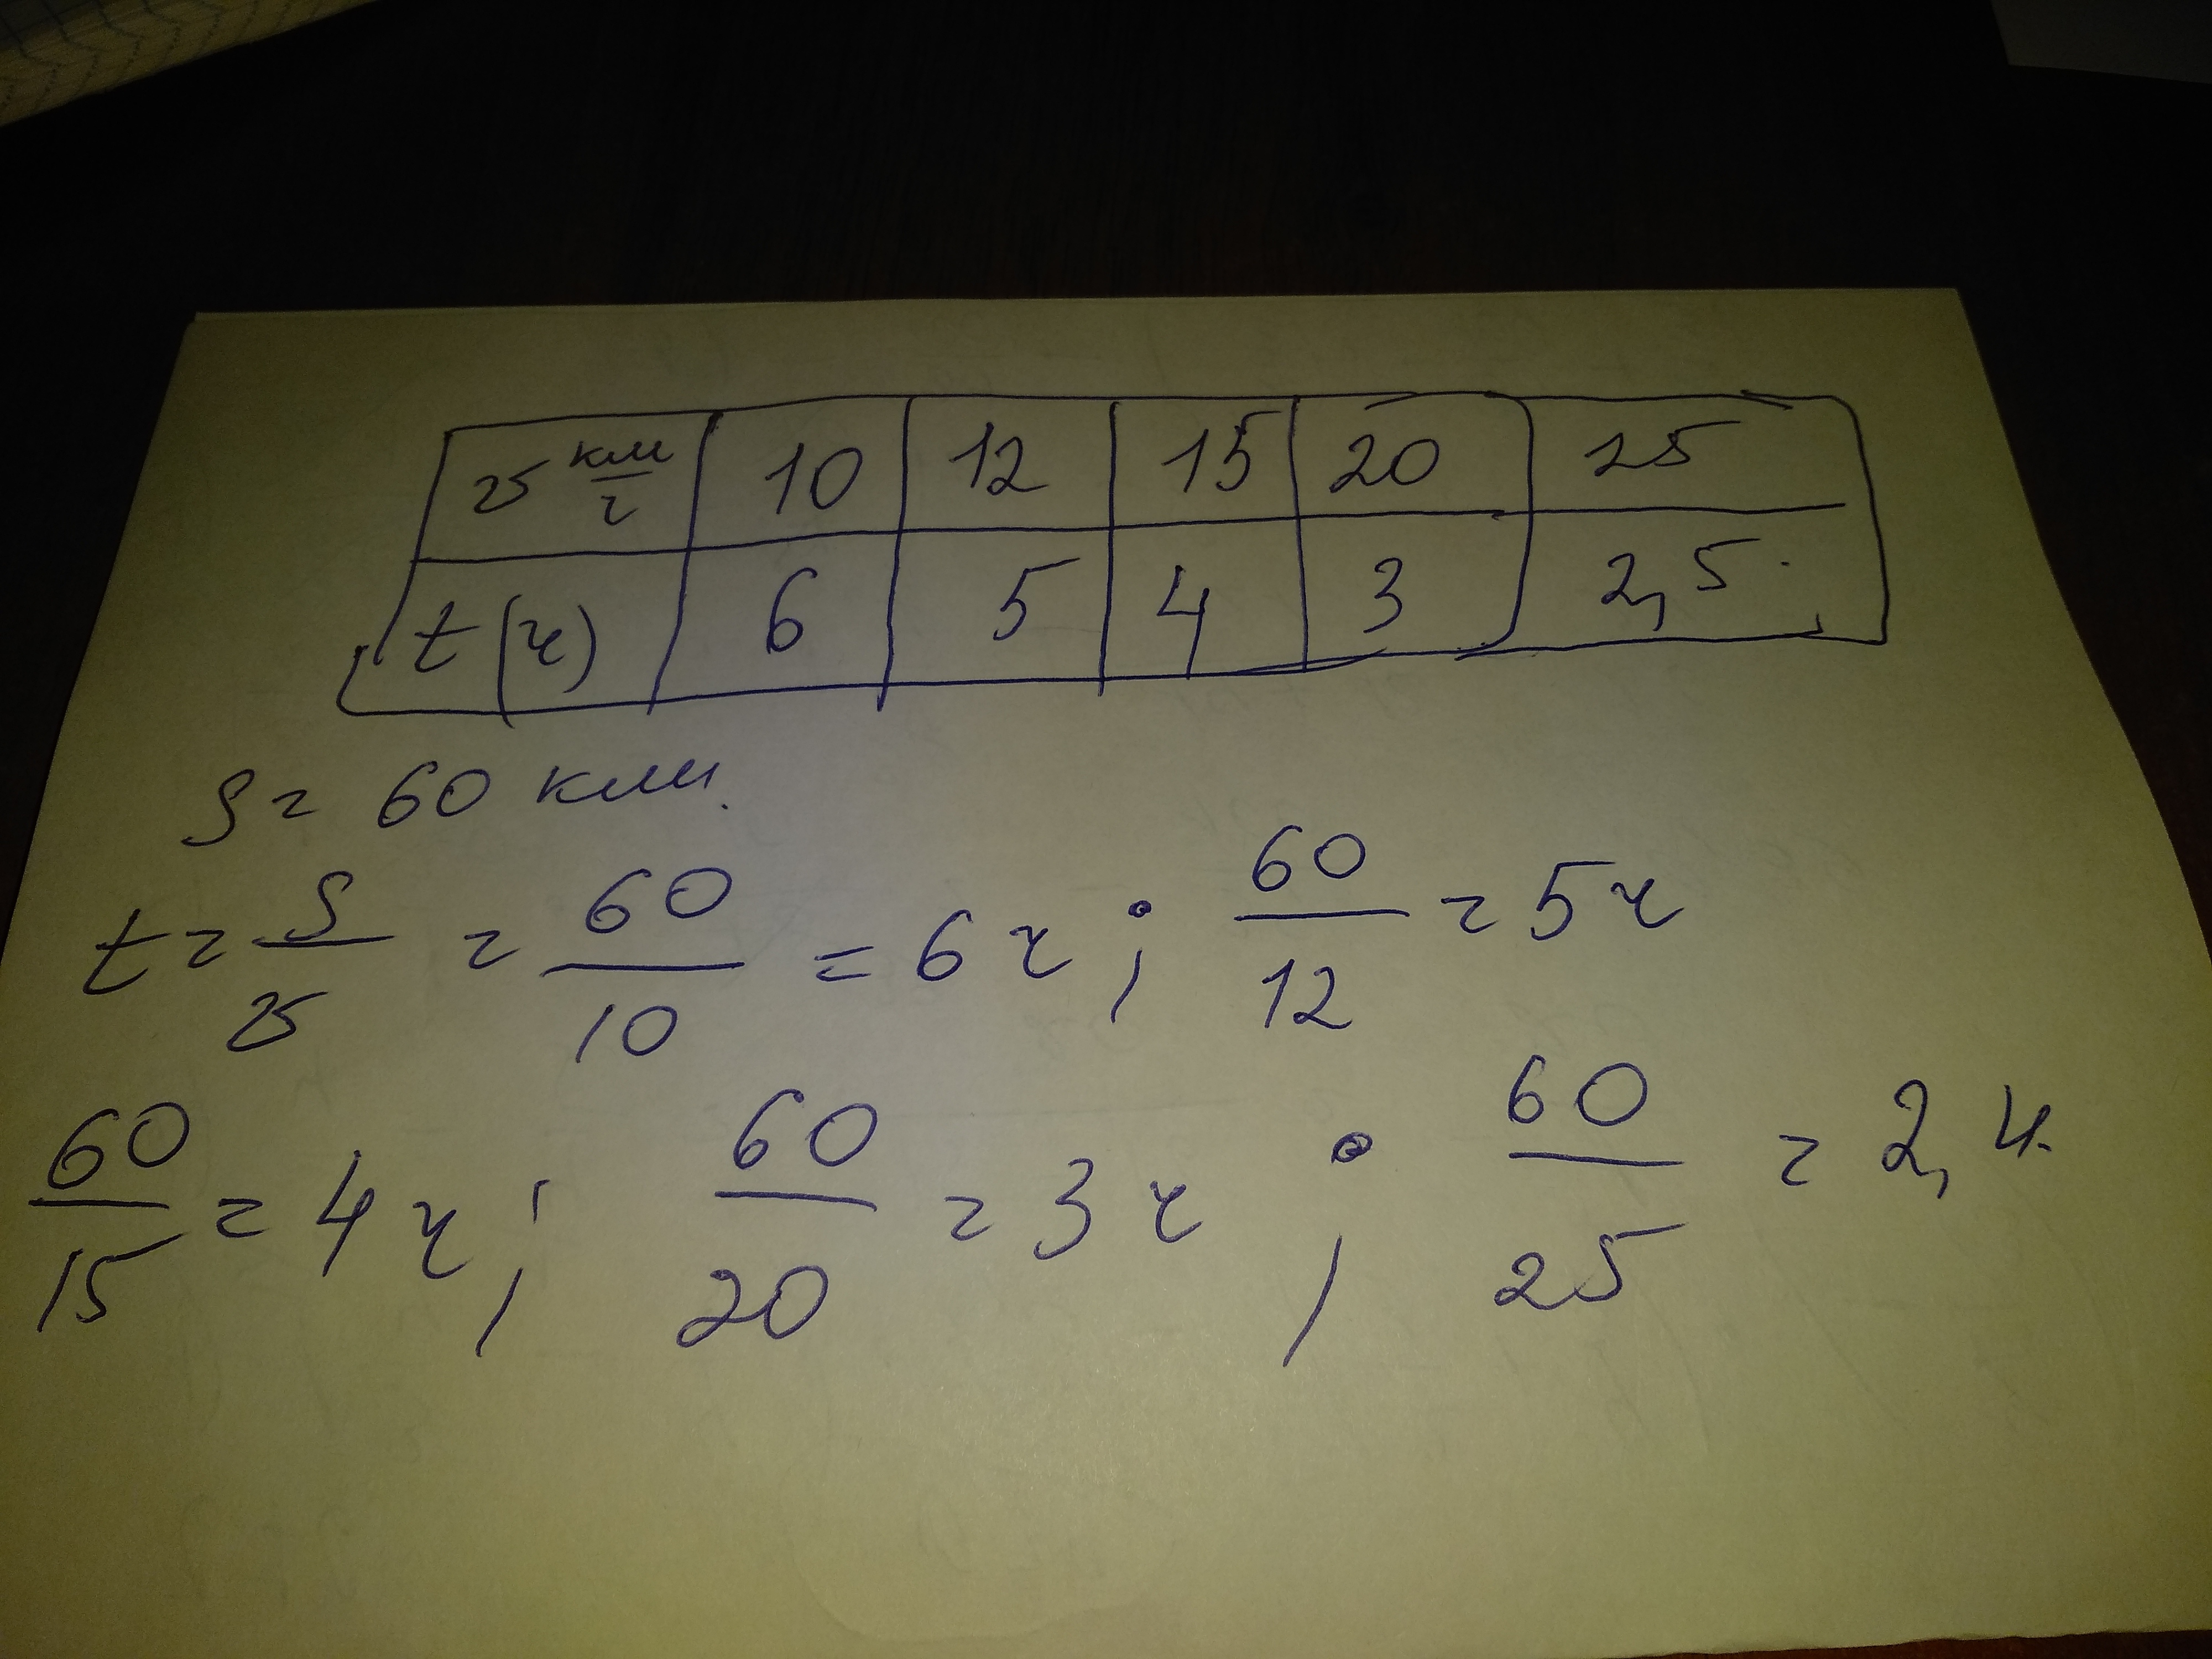 v км/ч 10 12 15 20 25
t (ч) 6 5 4 3 2,5.
S = 60 км.
t = S/v = 60/10 = 6 ч ; 60/12 = 5 ч
60/15 = 4 ч ; 60/20 = 3 ч ; 60/25 = 2,4.